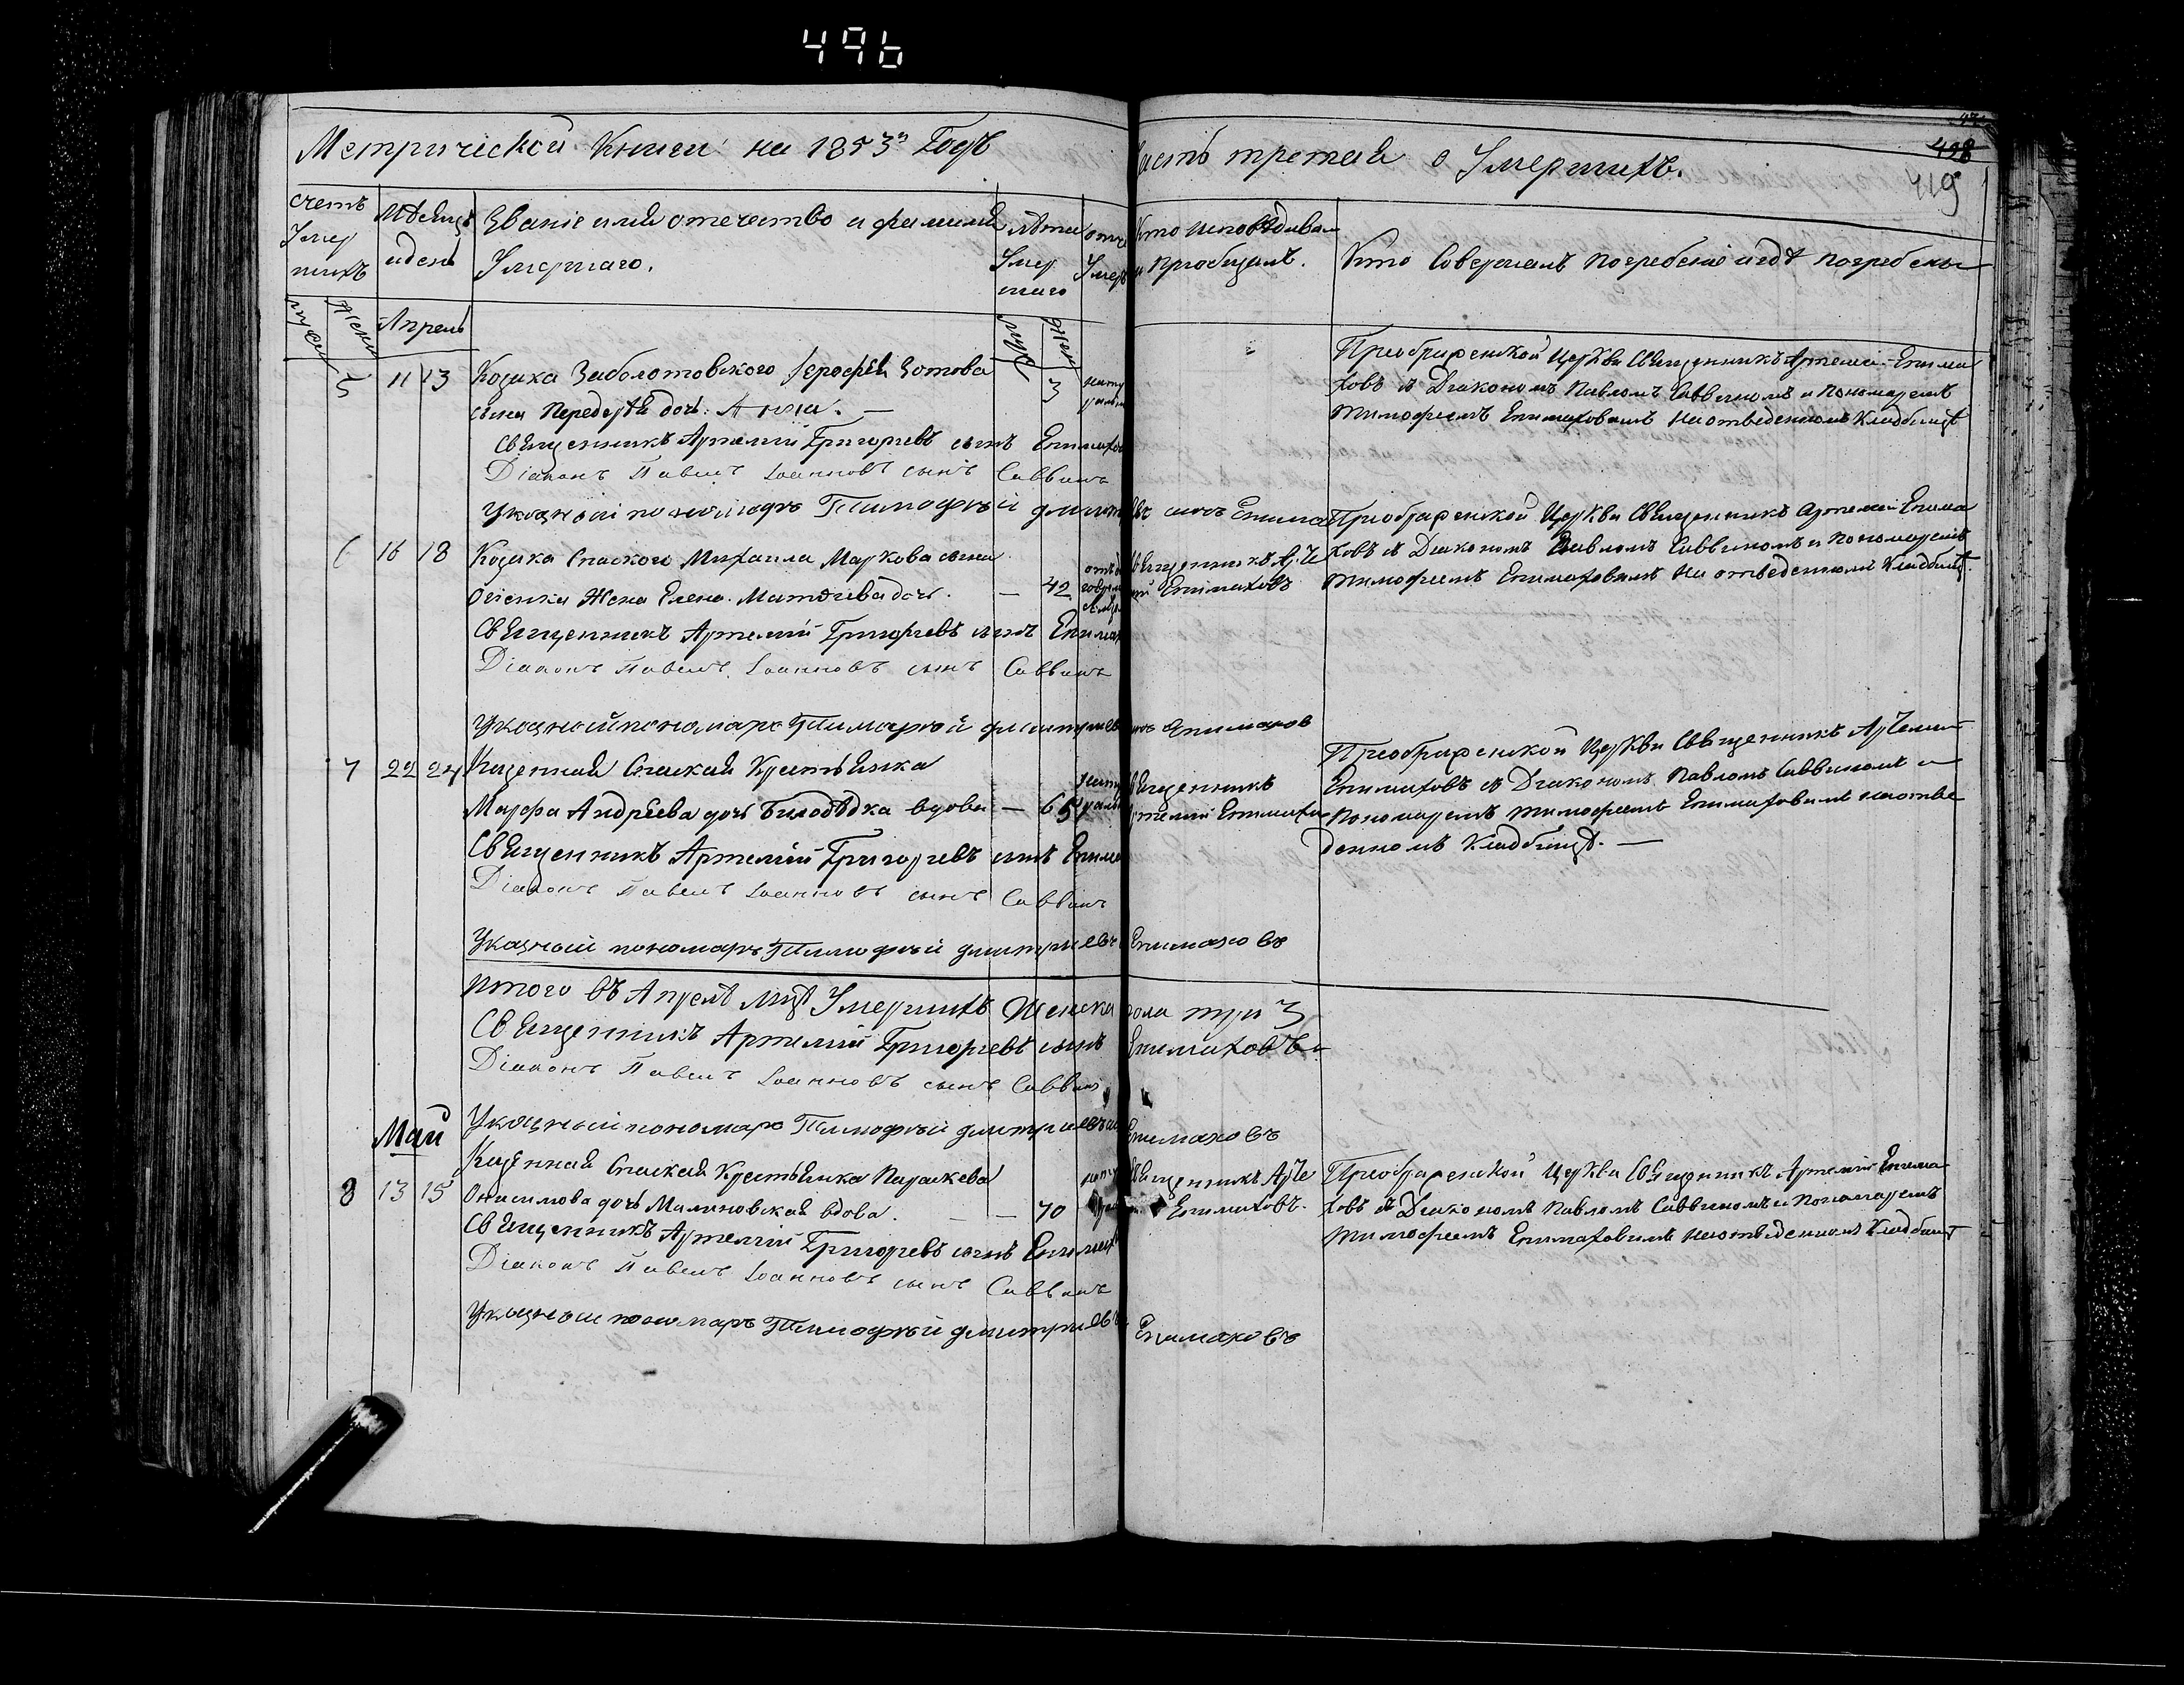 496
Метрической Книги на 1853й Годъ
часть третая о Умершихъ.
498
419
счетъ Умер шихъ
Мѣсяцъ и день
Званіе имя отечество и фамилия Умершаго.
лѣта Умер шаго
Кто исповѣдивал и приобщалъ.
Кто Совершалъ погребение и гдѣ погребены
муж жен
Апрель
муж жен
5 11 13 Козака Заболотовского Ерофея Зотова
сына Передерѣя дочь: Анна. — 3
Священникъ Артемій Григорьевъ сынъ Епимахов
Діаконъ Павелъ Іоанновъ сынъ Саввинъ
Указный пономарь Тимофѣй Дмитріевъ сынъ Епимах
Преображенской Церкви Священникъ Артемий Епима
ховъ съ Диакономъ Павломъ Саввиномъ и Пономаремъ
Тимофеемъ Епимаховымъ на отведенномъ Кладбищѣ
6 16 18 Козака Спаского Михаила Маркова сына
жена Елена Матѣева дочь. — 42
Священникъ Арте
мій Епимаховъ
Священникъ Артемій Григорьевъ сынъ Епимах
Діаконъ Павелъ Іоанновъ сынъ Саввинъ
Указный пономарь Тимофѣй Дмитріевъ сынъ Епимахов
Преображенской Церкви Священникъ Артемий Епима
ховъ съ Диакономъ Павломъ Саввиномъ и Пономаремъ
Тимофеемъ Епимаховымъ на отведенномъ Кладбищѣ.
7 22 24 Казенная Спаская Крестьянка
Марфа Андрѣева дочь Билодѣдка вдова — 65
Священникъ
Артемій Епимахов
Священникъ Артемій Григорьевъ сынъ Епима
Діаконъ Павелъ Іоанновъ сынъ Саввинъ
Указный пономарь Тимофѣй Дмитріевъ Епимаховъ
Преображенской Церкви Священникъ Артемий
Епимаховъ съ Диакономъ Павломъ Саввиномъ и
Пономаремъ Тимофеемъ Епимаховымъ на отве
денномъ Кладбищѣ. —
Итого въ Апрелѣ мцѣ Умершихъ Женска пола три 3
Священникъ Артемій Григорьевъ сынъ Епимаховъ
Діаконъ Павелъ Іоанновъ сынъ Саввинъ
Указный пономарь Тимофѣй Дмитріевъ сы Епимаховъ
Май
8 13 15 Казенная Спаская Крестьянка Параскева
Онисимова дочь Малиновская вдова. — — 70
Священникъ Арте
Епимаховъ.
Священникъ Артемій Григорьевъ сынъ Епимах
Діаконъ Павелъ Іоанновъ сынъ Саввинъ
Указный пономарь Тимофѣй Дмитріевъ Епимаховъ
Преображенской Церкви Священникъ Артемий Епима
ховъ съ Диакономъ Павломъ Саввиномъ и Пономаремъ
Тимофеемъ Епимаховымъ на отведенномъ Кладбищѣ